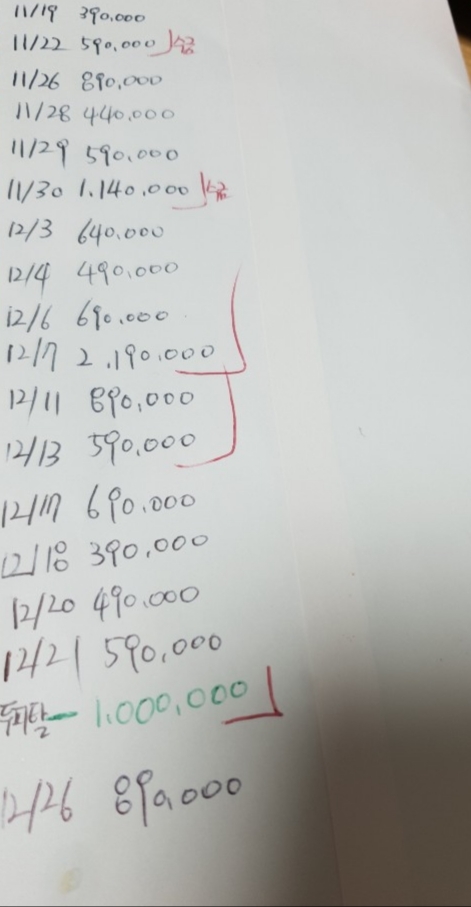 11/19 390.000
11/22 590.000 수금
11/26 890.000
11/28 440.000
11/29 590.000
11/30 1.140.000 수금
12/3 640.000
12/4 490.000
12/6 690.000
12/7 2.190.000
12/11 890.000
12/13 590.000
12/17 690.000
12/18 390.000
12/20 490.000
12/21 590,000
두피탈 - 1.000,000
12/26 890,000